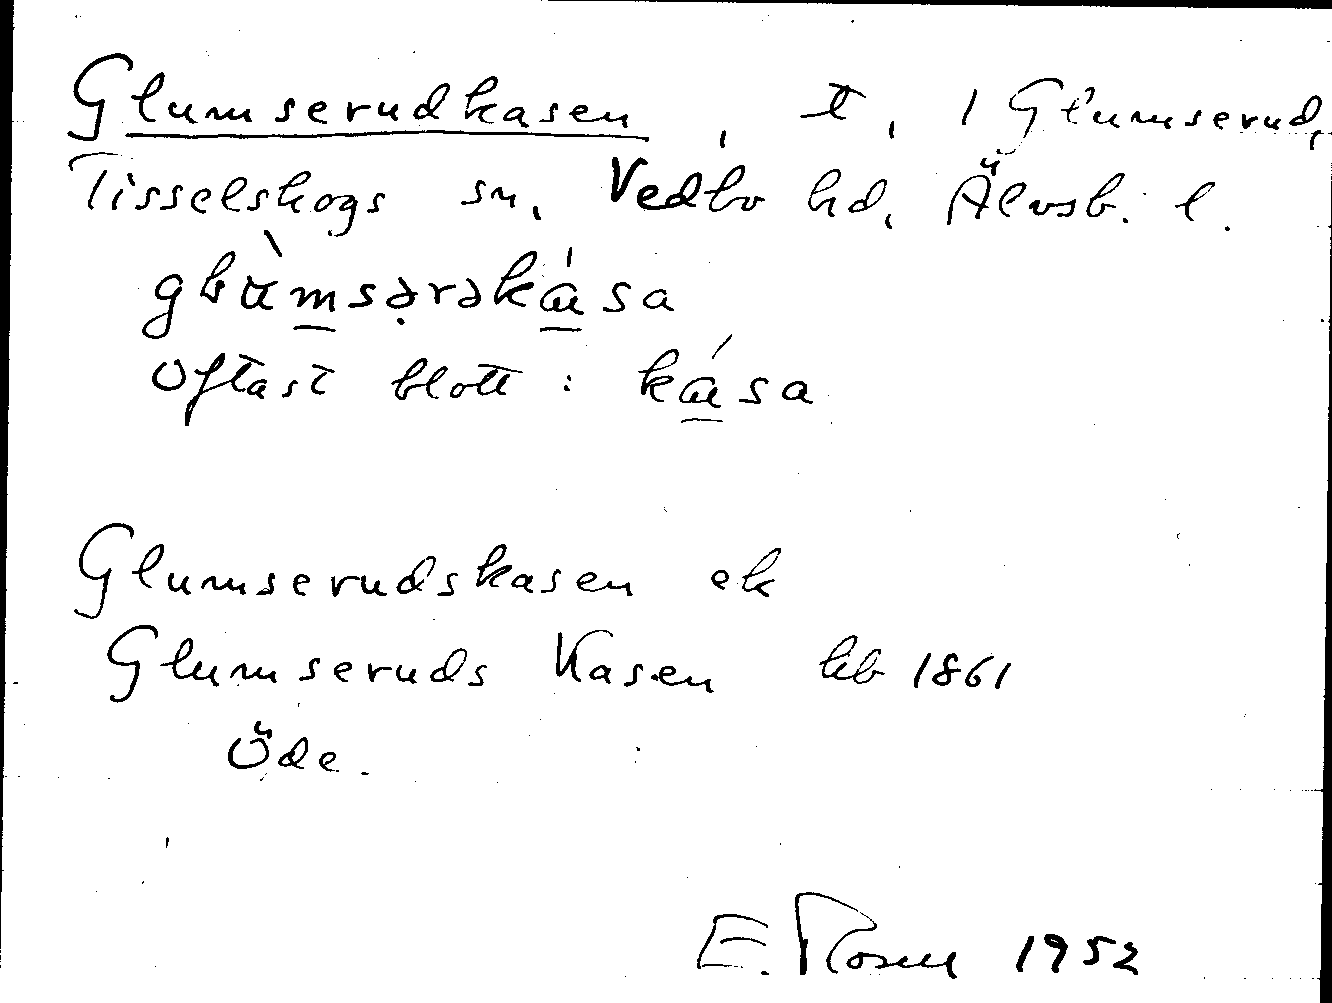 Glumserudkasen, t, / Glumserud,
Tisselskogs sn, Vedbo hd, Älvsb. l.
oftast blott: kása
Glumserudskasen ek
Glumseruds Kasen hb 1861
Öde.
E. Rosell 1952